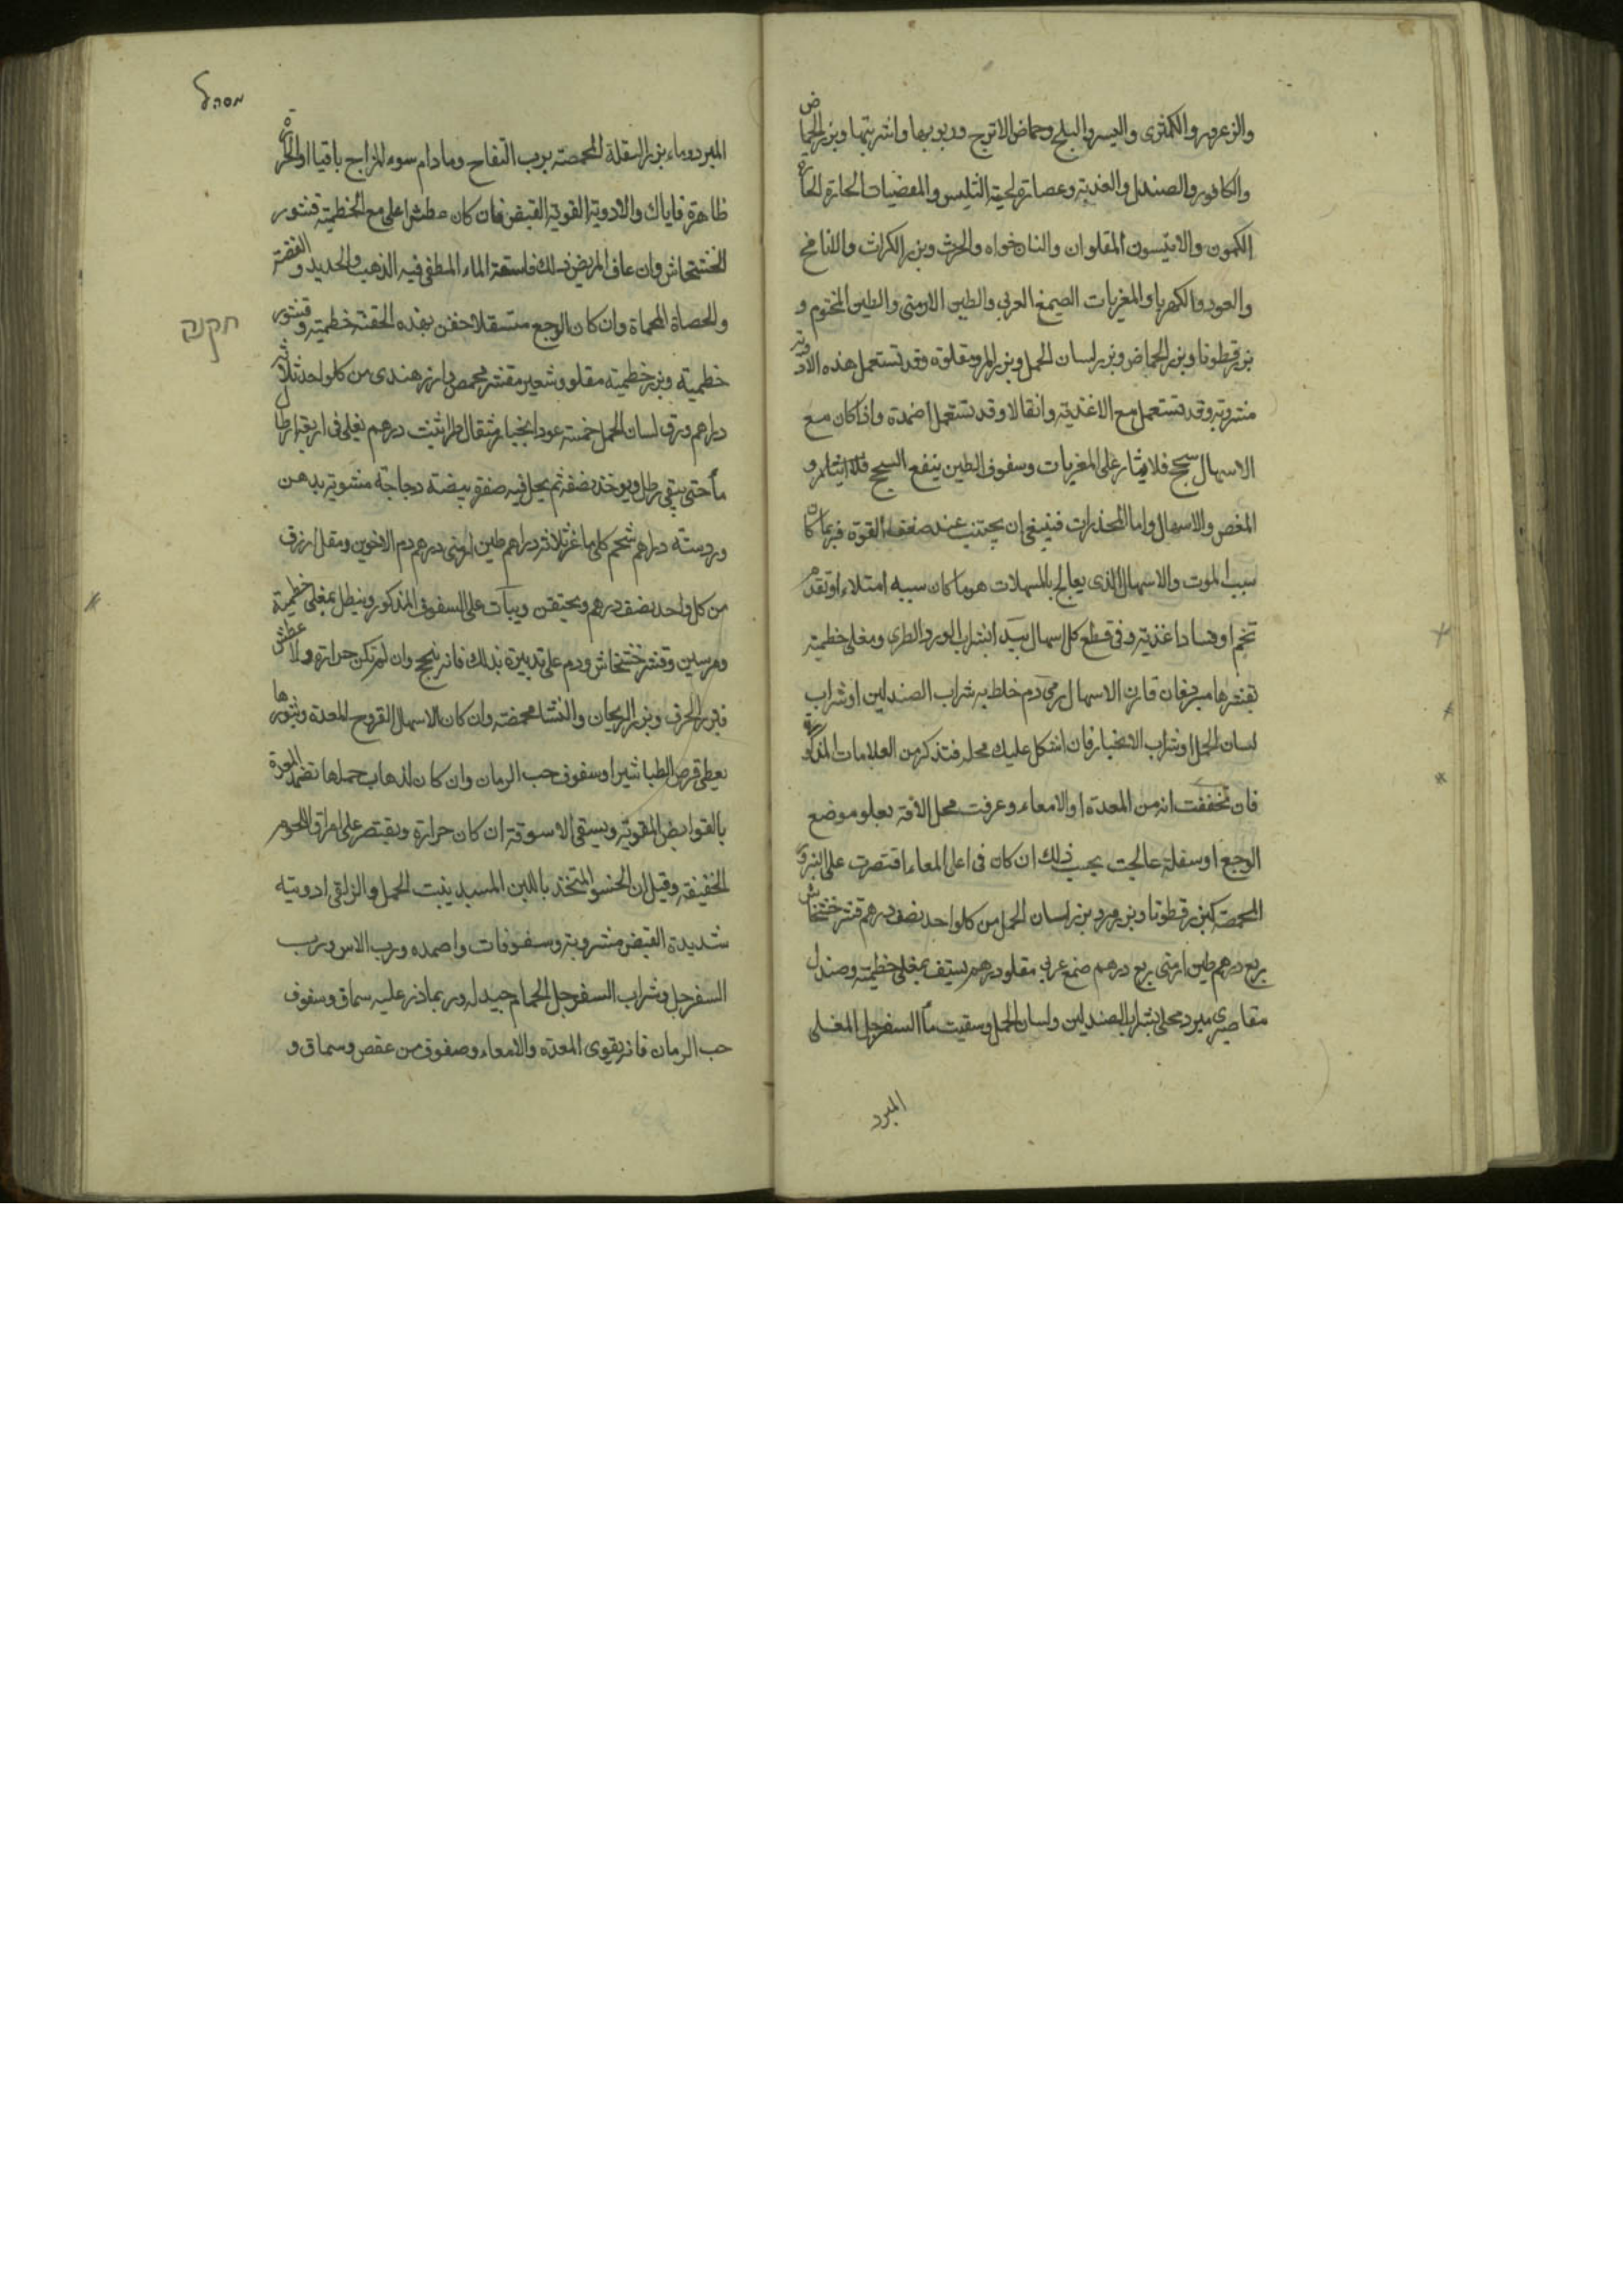 والزعرور والكمثرى والبسر والبلح وحماض الاترج وربوبها واشربتها وبزر الحماض
والكافور والصندل والعذبة وعصارة لحية التيس والمغصيات الحارة
الكمون والانيسون المقلوان والنانخواه والحرف وبزر الكراث والنافخ
والعود والكهربا والمغريات الصمغ العربي والطين الارمني والطين المختوم و
بزر قطونا وبزر الحماض وبزر لسان الحمل وبزر المرو مقلوة وقد تستعمل هذه الادوية
مشروبة وقد تستعمل مع الاغذية وانقالا وقد تستعمل اضمدة واذا كان مع
الاسهال سحج فلا يثار على المغريات وسفوف الطين ينفع السحج
المغص والاسهال واما المخدرات فينبغي ان يجتنب عند ضعف القوة فربما كان
سبب الموت والاسهال الذي يعالج بالمسهلات هو ما كان سببه امتلاء او تقدم
تخم او فساد اغذية وفي قطع كل اسهال يبدا بشراب الورد الطري ومغلي خطمية
بقشرها مبرد فان قارن الاسهال رمي دم خلط به شراب الصندلين او شراب
لسان الحمل او شراب الانجبار فان اشكل عليك محله فتذكر من العلامات المذكورة
فان تحققت انه من المعدة او الامعاء وعرفت محل الافة بعلو موضع
الوجع او سفله عالجت بحسب ذلك ان كان في اعلى المعاء اقتصرت على البزور
المحمصة كبزر قطونا وبزر مرو بزر لسان الحمل من كل واحد نصف درهم قشر خشخاش
ربع درهم طين ارمني ربع درهم صمغ عربي مقلو درهم يستف بمغلي خطمية وصندل
مقاصيري مبرد محلى بشراب الصندلين ولسان الحمل وسقيت ماء السفرجل المغلى
المبرد
מסהל
المبرد وماء بزر البقلة المحمصة برب التفاح وما دام سوء المزاج باقيا او الحرارة
ظاهرة فاياك والادوية القوية القبض فان كان عطش اغلي مع الخطمية قشور
الخشخاش وان عاف المريض ذلك فاسقه الماء المطفى فيه الذهب والحديد والفضة
والحصاة المحماة وان كان الوجع متسفلا احقن بهذه الحقنة خطمية وقشور
חקנה
خطمية وبزر خطمية مقلو وشعير مقشر محمص وارز هندي من كل واحد ثلاثة
دراهم ورق لسان الحمل خمسة عود انجبار مثقال طراثيث درهم يغلى في اربعة ارطال
ماء حتى يبقى رطل ويوخذ نصفه ثم يحل فيه صفرة بيضة دجاجة مشوية بدهن
ورد ستة دراهم شحم كلى ماعز ثلاثة دراهم طين ارمني درهم دم الاخوين ومقل ازرق
من كل واحد نصف درهم ويحتقن ويبات على السفوف المذكور وينطل بمغلي خطمية
ومرسين وقشر خشخاش ودم على تدبيره بذلك فانه ينجح وان لم تكن حرارة ولا عطش
فبزر الحرف وبزر الريحان والنشا محمصة وان كان الاسهال لقروح المعدة وبثورها
يعطى قرص الطباشير او سفوف حب الرمان وان كان لذهاب خملها تضمد المعدة
بالقوابض المقوية ويسقى الاسوقة ان كان حرارة ويقتصر على امراق اللحوم
الخفيفة وقيل ان الحسو المتخذ باللبن ينبت الخمل والزلقي ادويته
شديدة القبض مشروبة وسفوفات واضمده ورب الاس ورب
السفرجل وشراب السفرجل الحمام جيد له وربما ذر عليه سماق وسفوف
حب الرمان فانه يقوي المعدة والامعاء وسفوف من عفص وسماق و